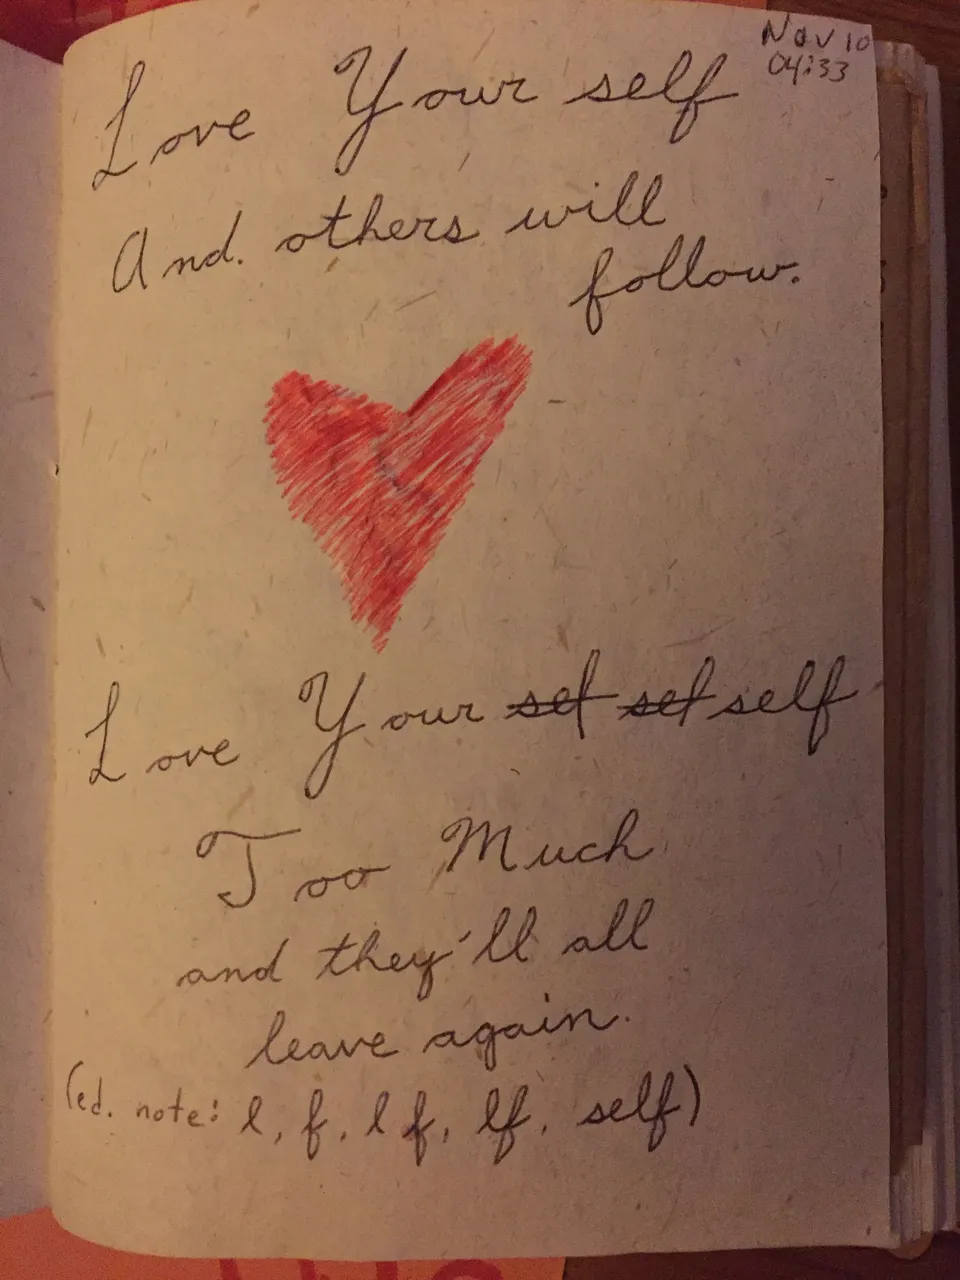 Nov 10
04:33
Love Your self
And. others will
follow.
Love Your sef sef self
Too Much
and they'll all
leave again.
(ed. note: l, f, l f, lf, self)